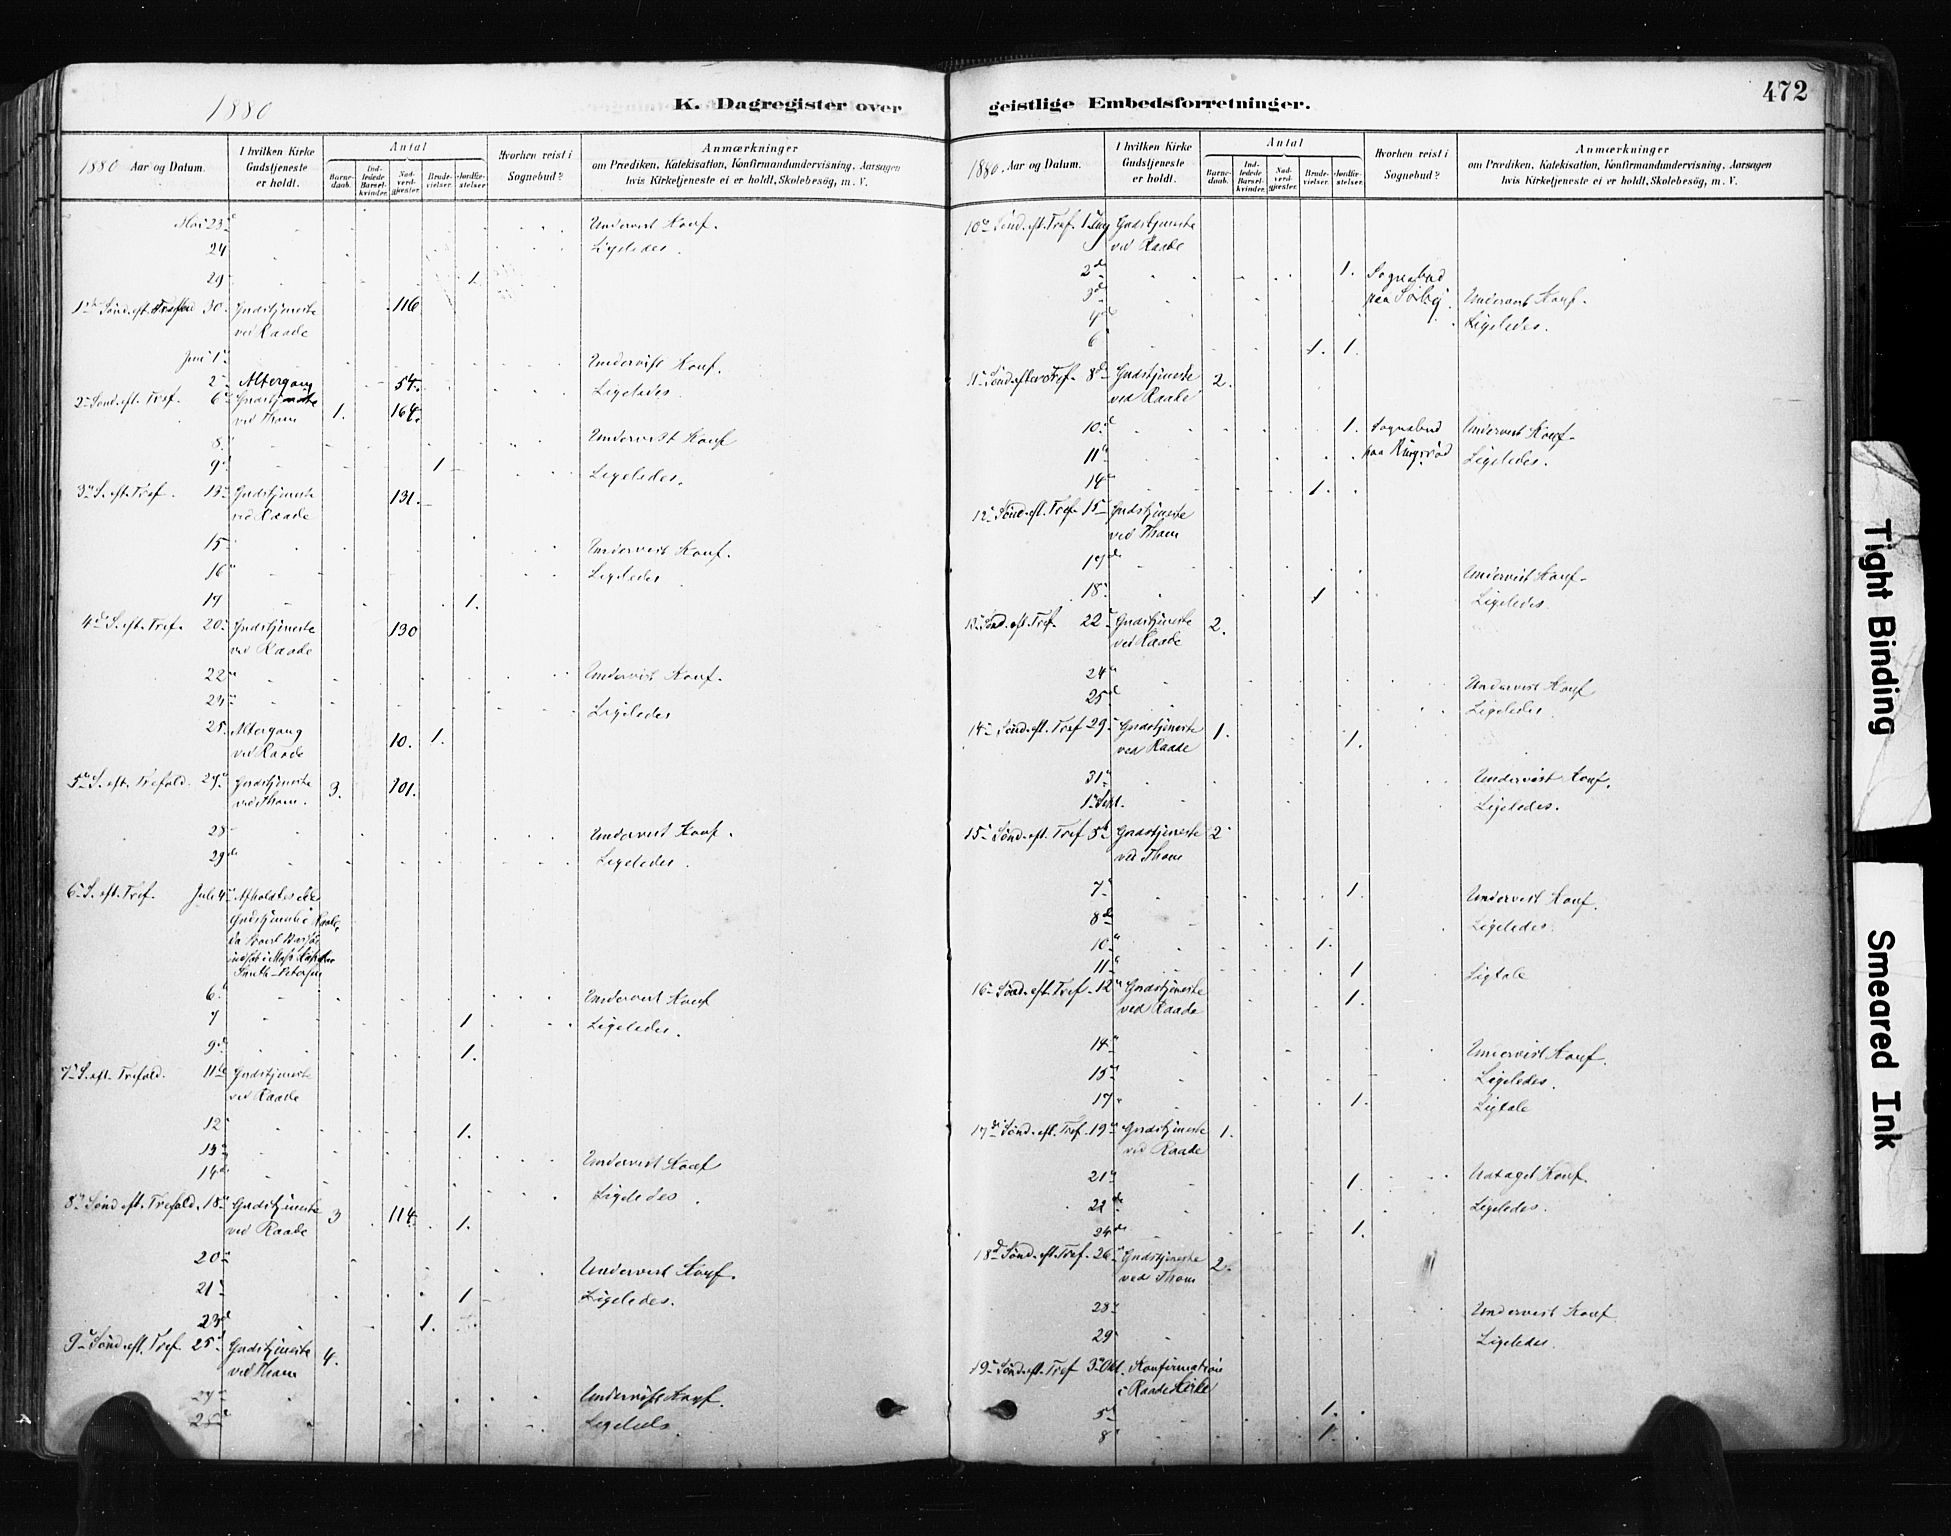 1880
K. Dagregister over
1880 Aar og Datum.
I hvilken Kirke
Gudstjeneste
er holdt.
Antal
Barne-
daab.
Ind-
ledede
Barsel-
kvinder.
Nad-
verd-
gjæster.
Brude-
vielser.
Jordfæ-
stelser.
Hvorhen reist i
Sognebud?
Anmærkninger
om Prædiken, Katekisation, Konfirmandundervisning, Aarsagen
hvis Kirketjeneste ei er holdt, Skolebesög, m. V.
Mai 23 Undervist Konf.
24 Ligeledes.
29 1.
1ste Sönd. eft. Trefold 30. Gudstjeneste 116
ved Raade
Juni 1 Undervist Konf.
2 Altergang 54. Ligeledes.
2 Sönd. eft. Tref. 6 Gudstjeneste 1. 164.
ved Thom
8 Undervist Konf
9 1 Ligeledes.
3 S. eft. Tref. 13 Gudstjeneste 131.
ved Raade
15 Undervist Konf.
16 Ligeledes.
17 1.
4 S. eft. Tref. 20 Gudstjeneste 130
ved Raade
22 Undervist Konf.
23 Ligeledes
25. Altergang 10. 1.
ved Raade
5 S. eft. Trefold. 27. Gudstjeneste 3. 101.
ved Thom.
28 Undervist Konf.
29 Ligeledes.
6 S. eft. Tref. Juli 4 Afholdtes ikke
Gudstjeneste i Raade,
6 Undervist Konf
7 1 Ligeledes.
9 1.
7 S. eft. Trefold. 11 Gudstjeneste
ved Raade
12 1.
13 Undervist Konf
14 Ligeledes.
8 Sönd eft. Trefold. 18 Gudstjeneste 3 114. 1.
ved Raade
20 Undervist Konf.
21 1 Ligeledes.
23 1.
9 Sönd. eft. Tref. 25 Gudstjeneste 4.
ved Thom
27 Undervist Konf.
28 Ligeledes.
geistlige Embedsforretninger.
472
1880. Aar og Datum.
I hvilken Kirke
Gudstjeneste
er holdt.
Antal
Barne-
daab.
Ind-
ledede
Barsel-
kvinder.
Nad-
verd-
gjæster.
Brude-
vielser.
Jordfæ-
stelser.
Hvorhen reist i
Sognebud?
Anmærkninger
om Prædiken, Katekisation, Konfirmandundervisning, Aarsagen
hvis Kirketjeneste ei er holdt, Skolebesög, m. V.
10 Sönd. eft. Tref. 1. Aug Gudstjeneste
ved Raade
2 1. Sognebud
3 paa Sörby. Undervist Konf.
4 Ligeledes.
6 1. 1.
11 Sönd. efter Tref. 8 Gudstjeneste 2.
ved Raade
10 1. Sognebud Undervist Konf.
11 paa Ligeledes.
14 1.
12 Sönd. eft. Tref. 15 Gudstjeneste
ved Thom
17 Undervist Konf.
18 1 Ligeledes.
13 Sönd. eft. Tref. 22 Gudstjeneste 2.
ved Raade
24 Undervist Konf
25 Ligeledes.
14 Sönd. eft. Tref 29 Gudstjeneste 1. 1.
ved Raade
31 Undervist Konf.
1 Sept. Ligeledes.
15 Sönd. eft. Tref 5 Gudstjeneste 2
ved Thom
7 1. Undervist Konf.
8 Ligeledes.
10 1.
11 1 Ligtale
16 Sönd. eft. Tref. 12 Gudstjeneste 1.
ved Raade
14 Undervist Konf.
15 Ligeledes.
17 1. Ligtale
17 Sönd. eft. Tref. 19 Gudstjeneste 1.
ved Raade
21 1. Konf.
22 Ligeledes.
24 1.
18 Sönd. eft. Tref. 26 Gudstjeneste 2.
ved Thom
28 Undervist Konf
29 Ligeledes.
19 Sönd. eft. Tref 3 Okt. Konfirmation
i Raade Kirke
5 1.
8 1.
Tight Binding
Smeared Ink